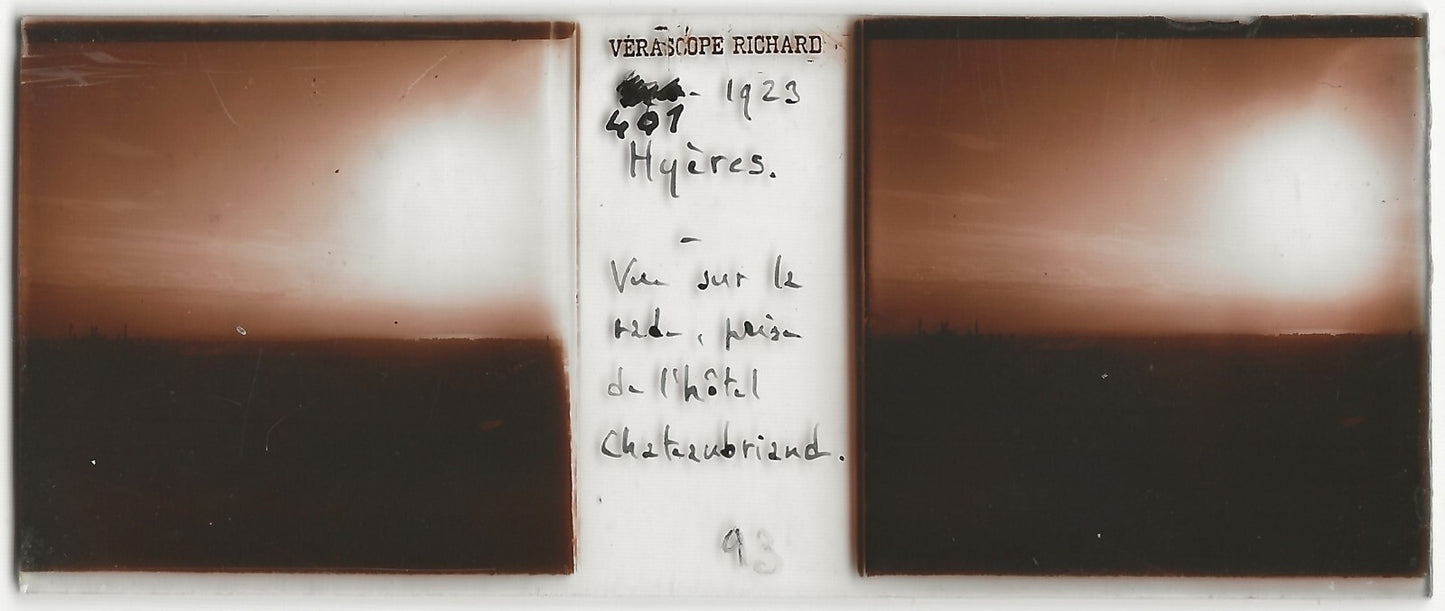 VÉRASCOPE RICHARD
- 1923
401
Hyères.
Vue sur la
rade, prise
de l'hôtel
Chateaubriand.
93